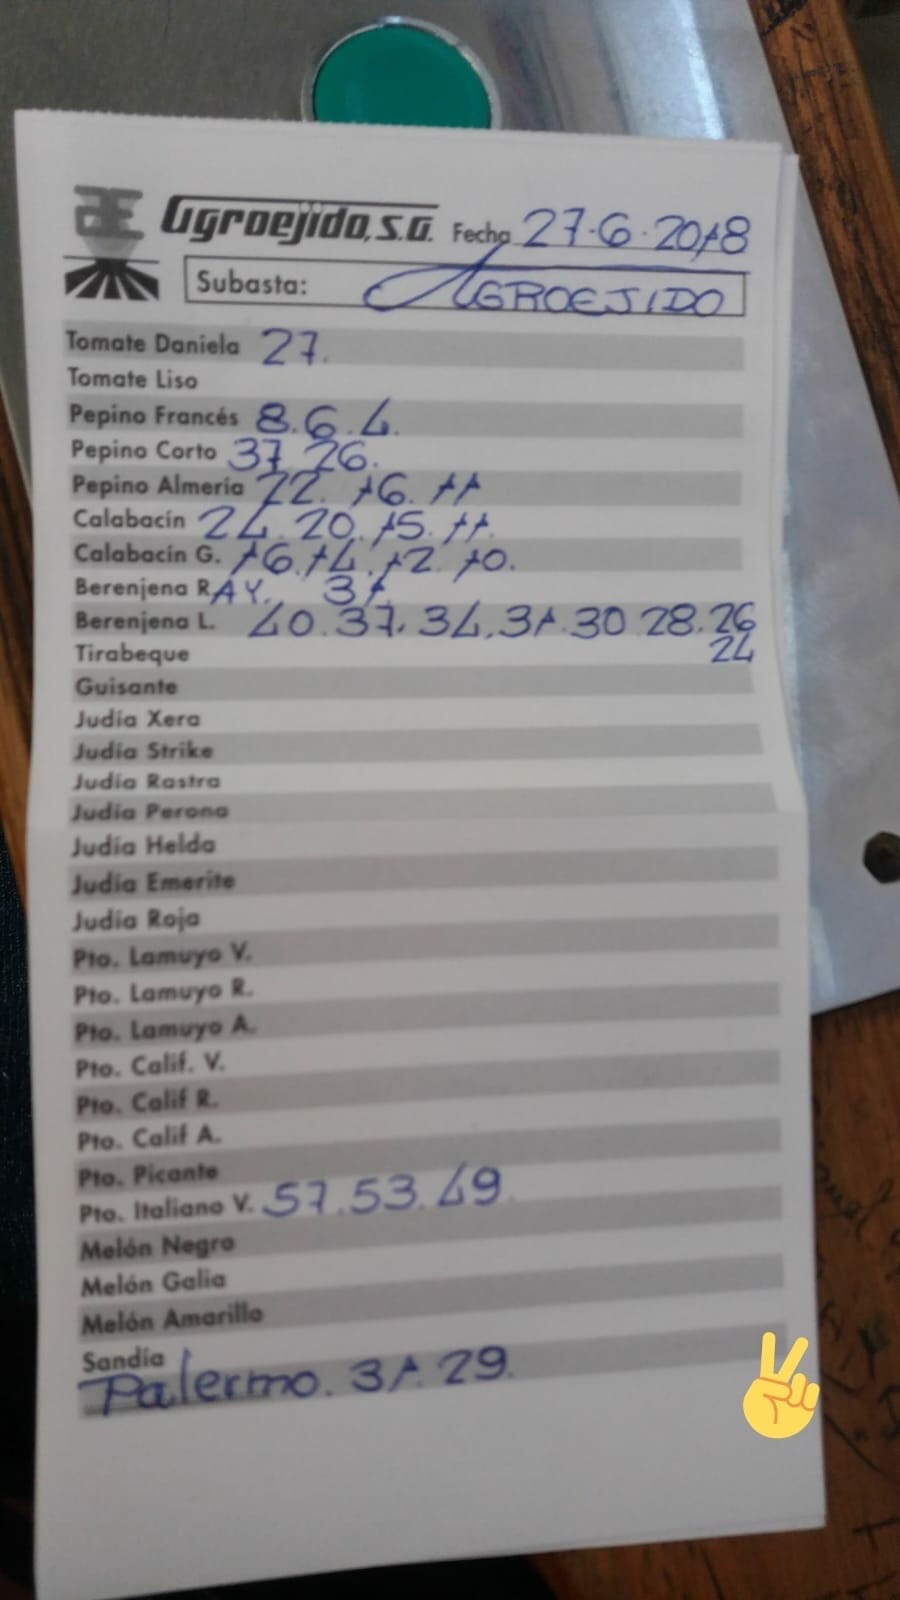 AE Agroejido, S.A. Fecha 27-6-2018
Subasta: AGROEJIDO
Tomate Daniela 27.
Tomate Liso
Pepino Francés 8.6.4.
Pepino Corto 37 26.
Pepino Almería 22. 16. 11
Calabacín 24. 20. 15. 11.
Calabacín G. 16. 14. 12. 10.
Berenjena RAY. 31.
Berenjena L. 40. 37. 34. 31. 30 28. 26
24
Tirabeque
Guisante
Judía Xera
Judía Strike
Judía Rastra
Judía Perona
Judía Helda
Judía Emerite
Judía Roja
Pto. Lamuyo V.
Pto. Lamuyo R.
Pto. Lamuyo A.
Pto. Calif. V.
Pto. Calif R.
Pto. Calif A.
Pto. Picante
Pto. Italiano V. 57. 53. 49.
Melón Negro
Melón Galia
Melón Amarillo
Sandía
Palermo. 31. 29.